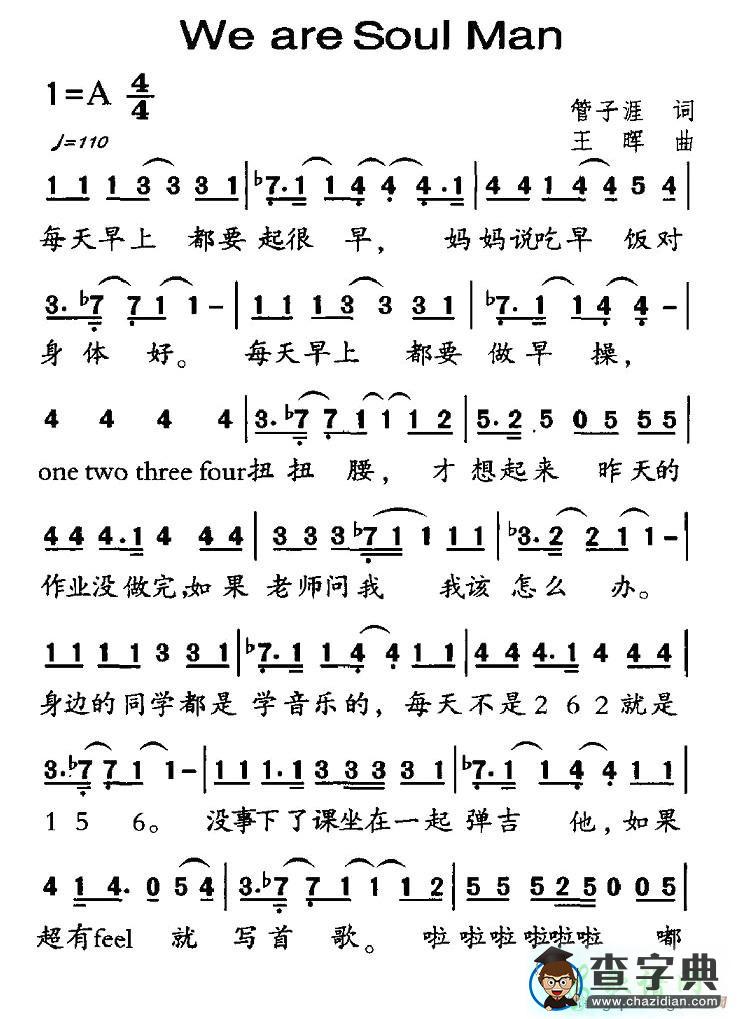 We are Soul Man
1=A 4/4
管子涯 词
♩=110
王晖 曲
1 1 1 3 3 3 3 1 | ♭7. 1 1 4 4 4.1 | 4 4 1 4 4 5 4 |
每天早上 都要起很 早， 妈妈说吃早 饭对
3.♭7 7 1 1 - | 1 1 1 3 3 3 3 1 | ♭7. 1 1 4 4 - |
身体 好。 每天早上 都要 做早 操，
4 4 4 4 | 3.♭7 7 1 1 1 2 | 5.2 5 0 5 5 5 |
one two three four扭扭 腰， 才想起来 昨天的
4 4 4.1 4 4 4 | 3 3 3 ♭7 1 1 1 1 | ♭3.2 2 1 1 - |
作业没做完,如果 老师问我 我该 怎么 办。
1 1 1 1 3 3 1 | ♭7. 1 1 4 4 1 1 | 4 4 4.1 4 4 4 |
身边的同学都是 学音乐的，每天不是2 6 2就是
3.♭7 7 1 1 - | 1 1 1.1 3 3 3 3 1 | ♭7. 1 1 4 4 1 1 |
1 5 6。 没事下了课坐在一起 弹吉 他，如果
4 1 4. 0 5 4 | 3.♭7 7 1 1 1 2 | 5 5 5 2 5 0 0 5 |
超有feel 就 写首 歌。 啦 啦啦 啦啦啦 嘟
查字典
www.chazidian.com